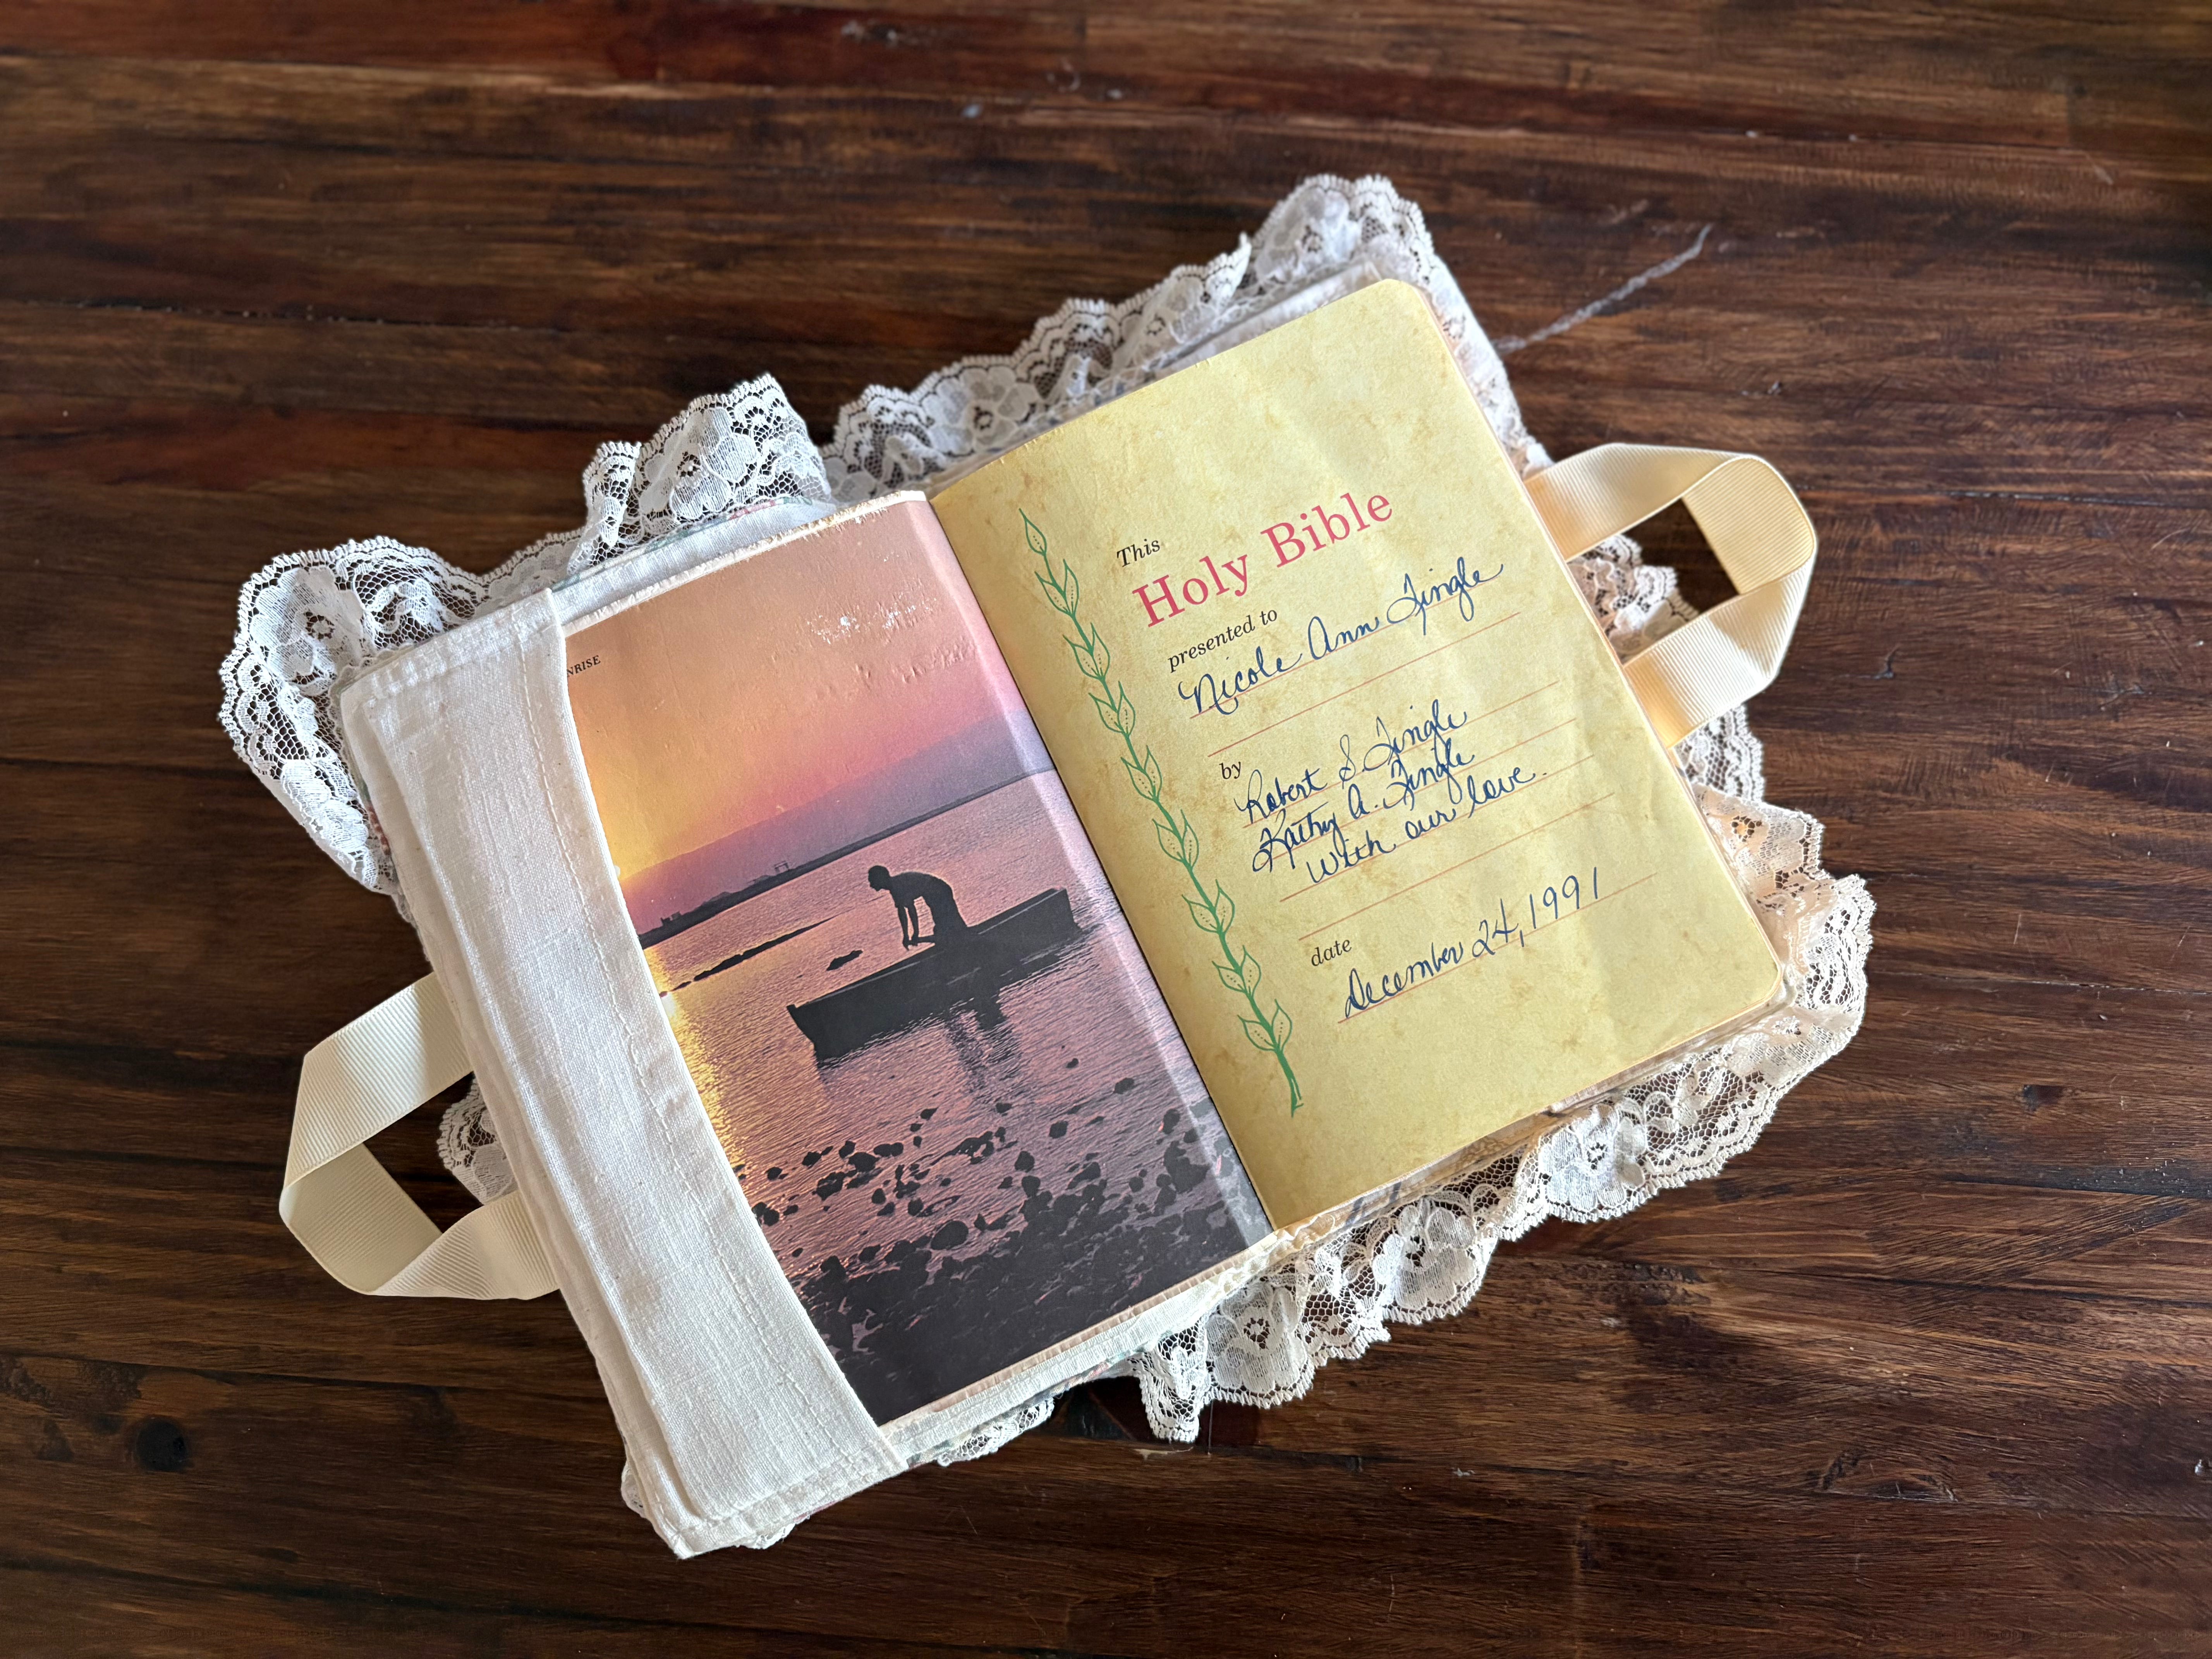 NRISE
This
Holy Bible
presented to
Nicole Ann Tingle
by
Robert S Tingle
Kathy A. Tingle
With our love.
date
December 24, 1991